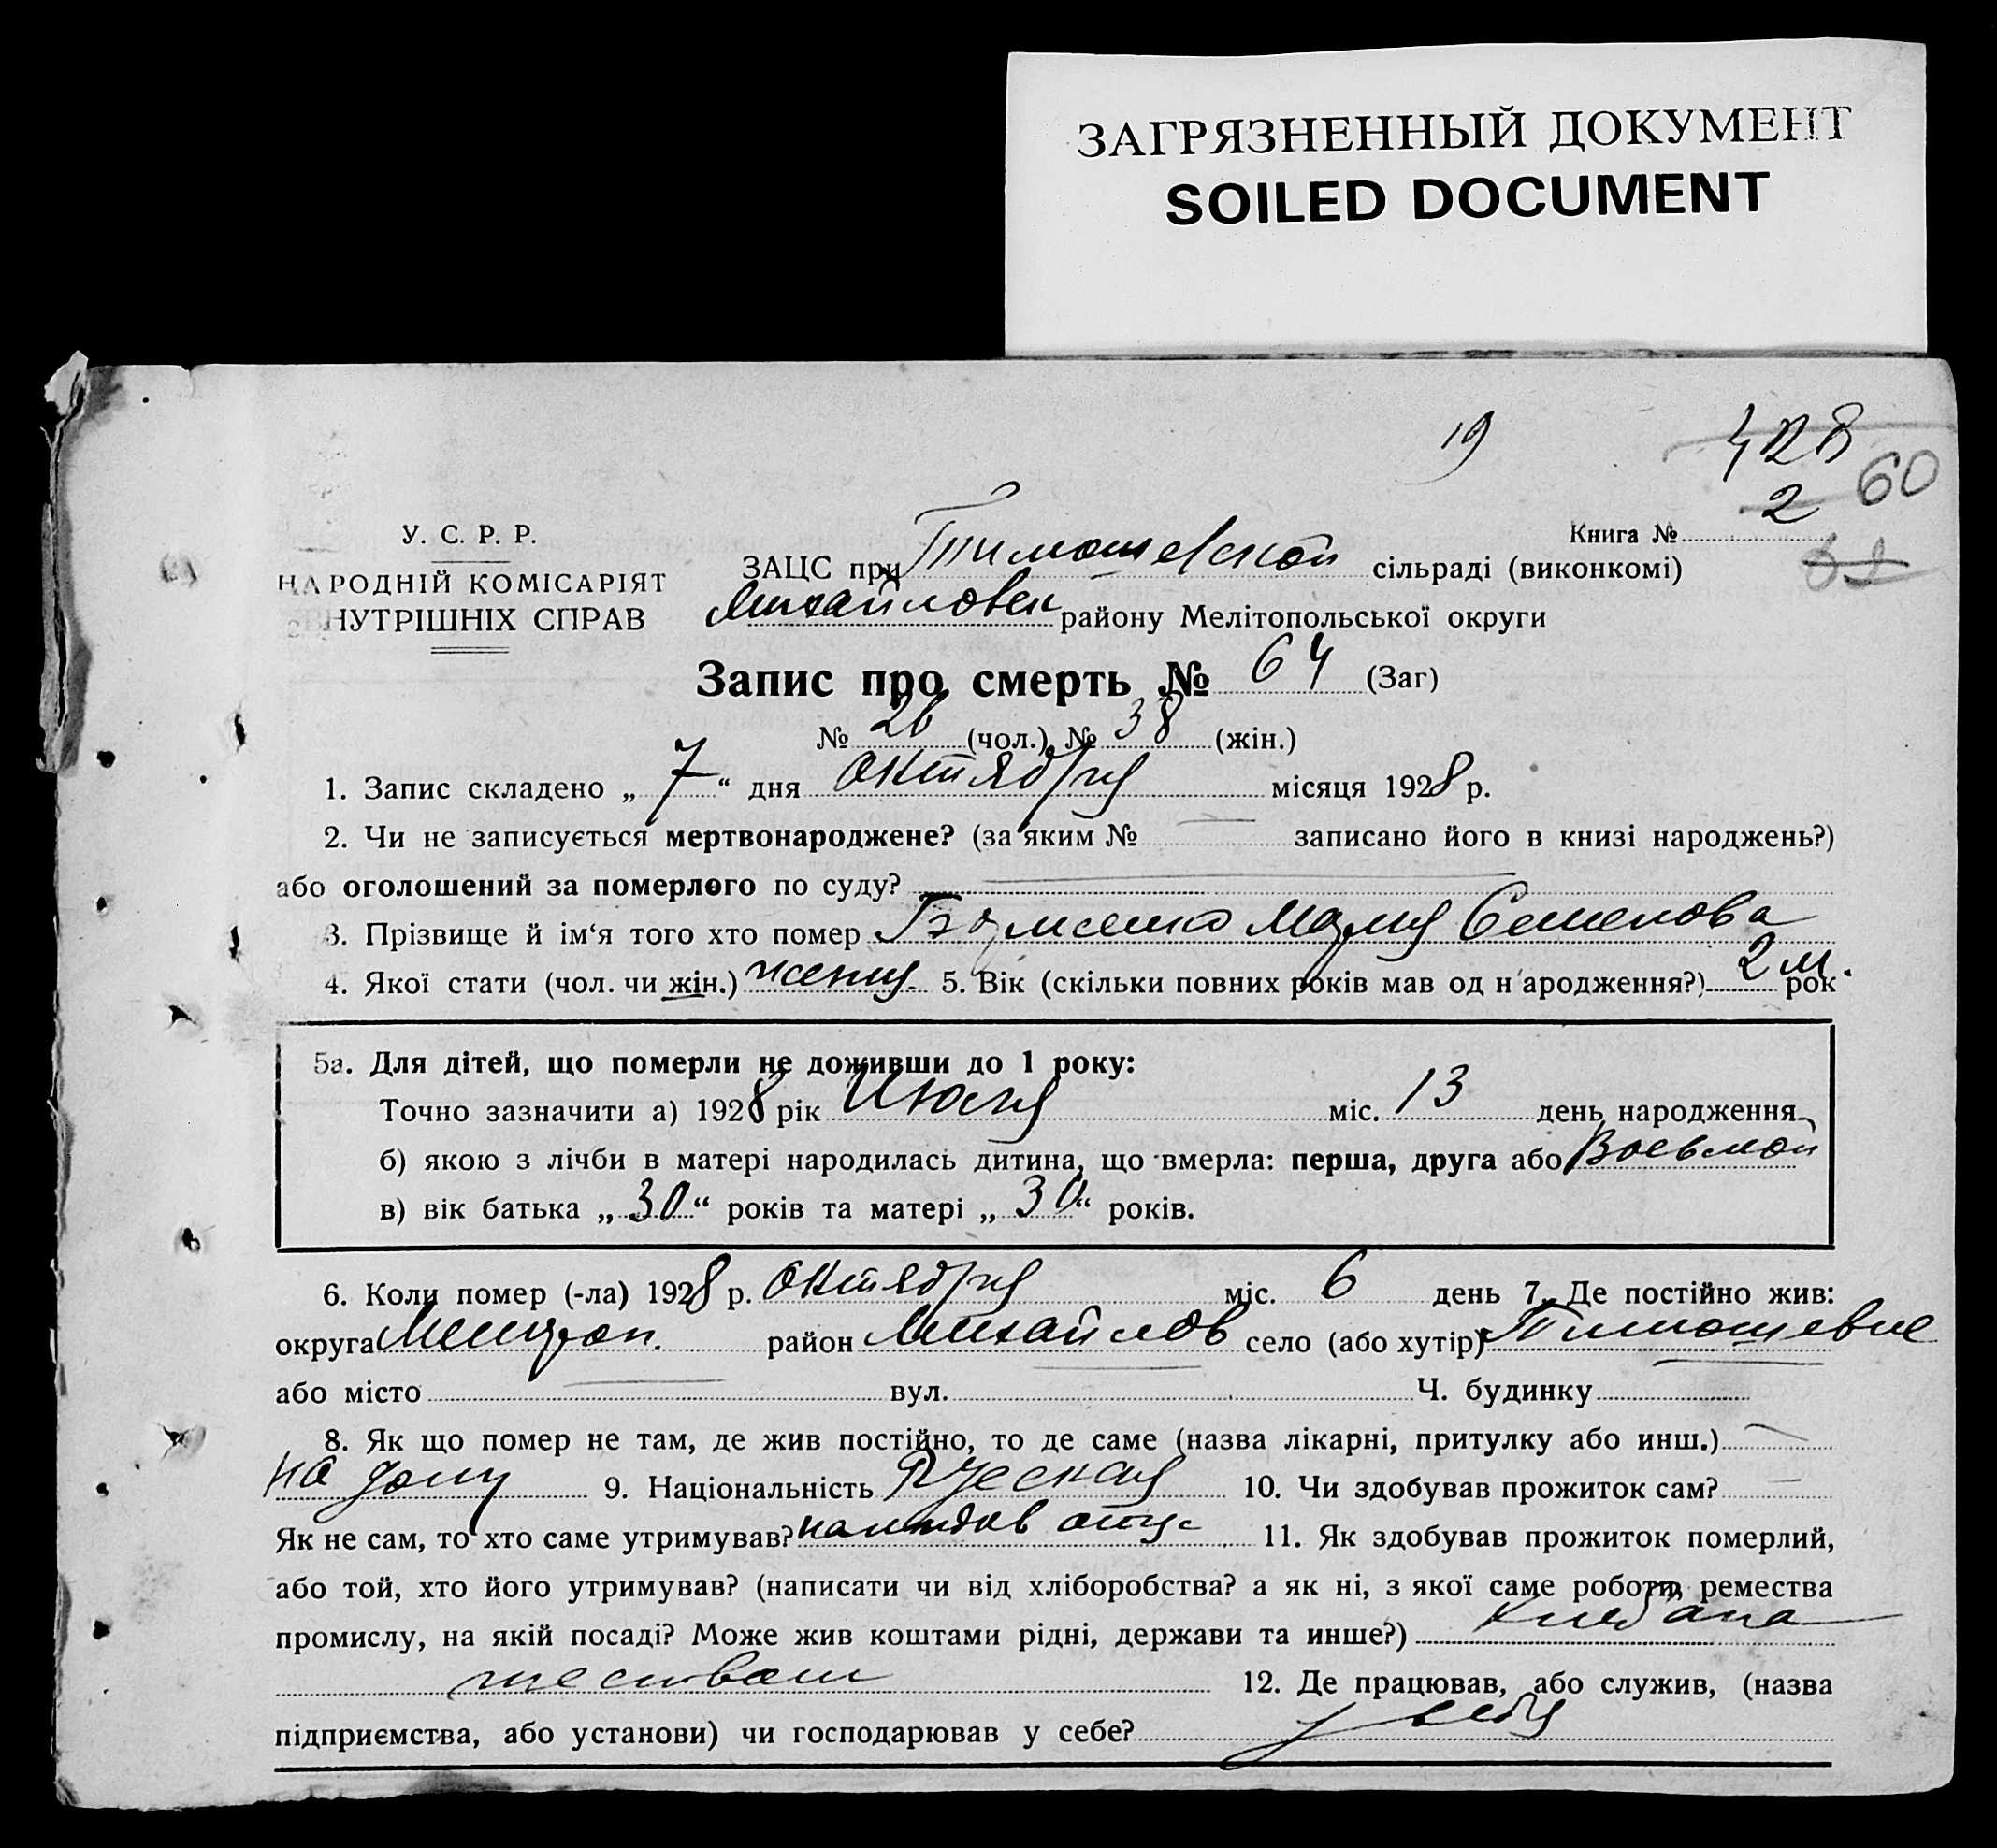 ЗАГРЯЗНЕННЫЙ ДОКУМЕНТ
SOILED DOCUMENT
19
428
60
2
У. С. Р. Р.
Книга №
НАРОДНІЙ КОМІСАРІЯТ
ВНУТРІШНІХ СПРАВ
ЗАЦС при Тимошевской сільраді (виконкомі)
Михайловск району Мелітопольської округи
Запис про смерть № 64 (Заг)
№ 26 (чол.) № 38 (жін.)
1. Запис складено „ 7 “ дня октября місяця 1928 р.
2. Чи не записується мертвонароджене? (за яким № записано його в книзі народжень?)
або оголошений за померлого по суду?
3. Прізвище й ім‘я того хто помер Мария Семенова
4. Якої стати (чол. чи жін.) женщ. 5. Вік (скільки повних років мав од народження?) 2 м. рок
5а. Для дітей, що померли не доживши до 1 року:
Точно зазначити а) 1928 рік Июля міс. 13 день народження
б) якою з лічби в матері народилась дитина, що вмерла: перша, друга або Восьмой
в) вік батька „ 30 “ років та матері „ 30 “ років.
6. Коли помер (-ла) 1928 р. октября міс. 6 день 7. Де постійно жив:
округа район Михайлов село (або хутір) Тимошевке
або місто вул. Ч. будинку
8. Як що помер не там, де жив постійно, то де саме (назва лікарні, притулку або инш.)
на дому 9. Національність Русская 10. Чи здобував прожиток сам?
Як не сам, то хто саме утримував? 11. Як здобував прожиток померлий,
або той, хто його утримував? (написати чи від хліборобства? а як ні, з якої саме роботи, ремества
промислу, на якій посаді? Може жив коштами рідні, держави та инше?) хлебопа
шеством 12. Де працював, або служив, (назва
підприємства, або установи) чи господарював у себе? у себя